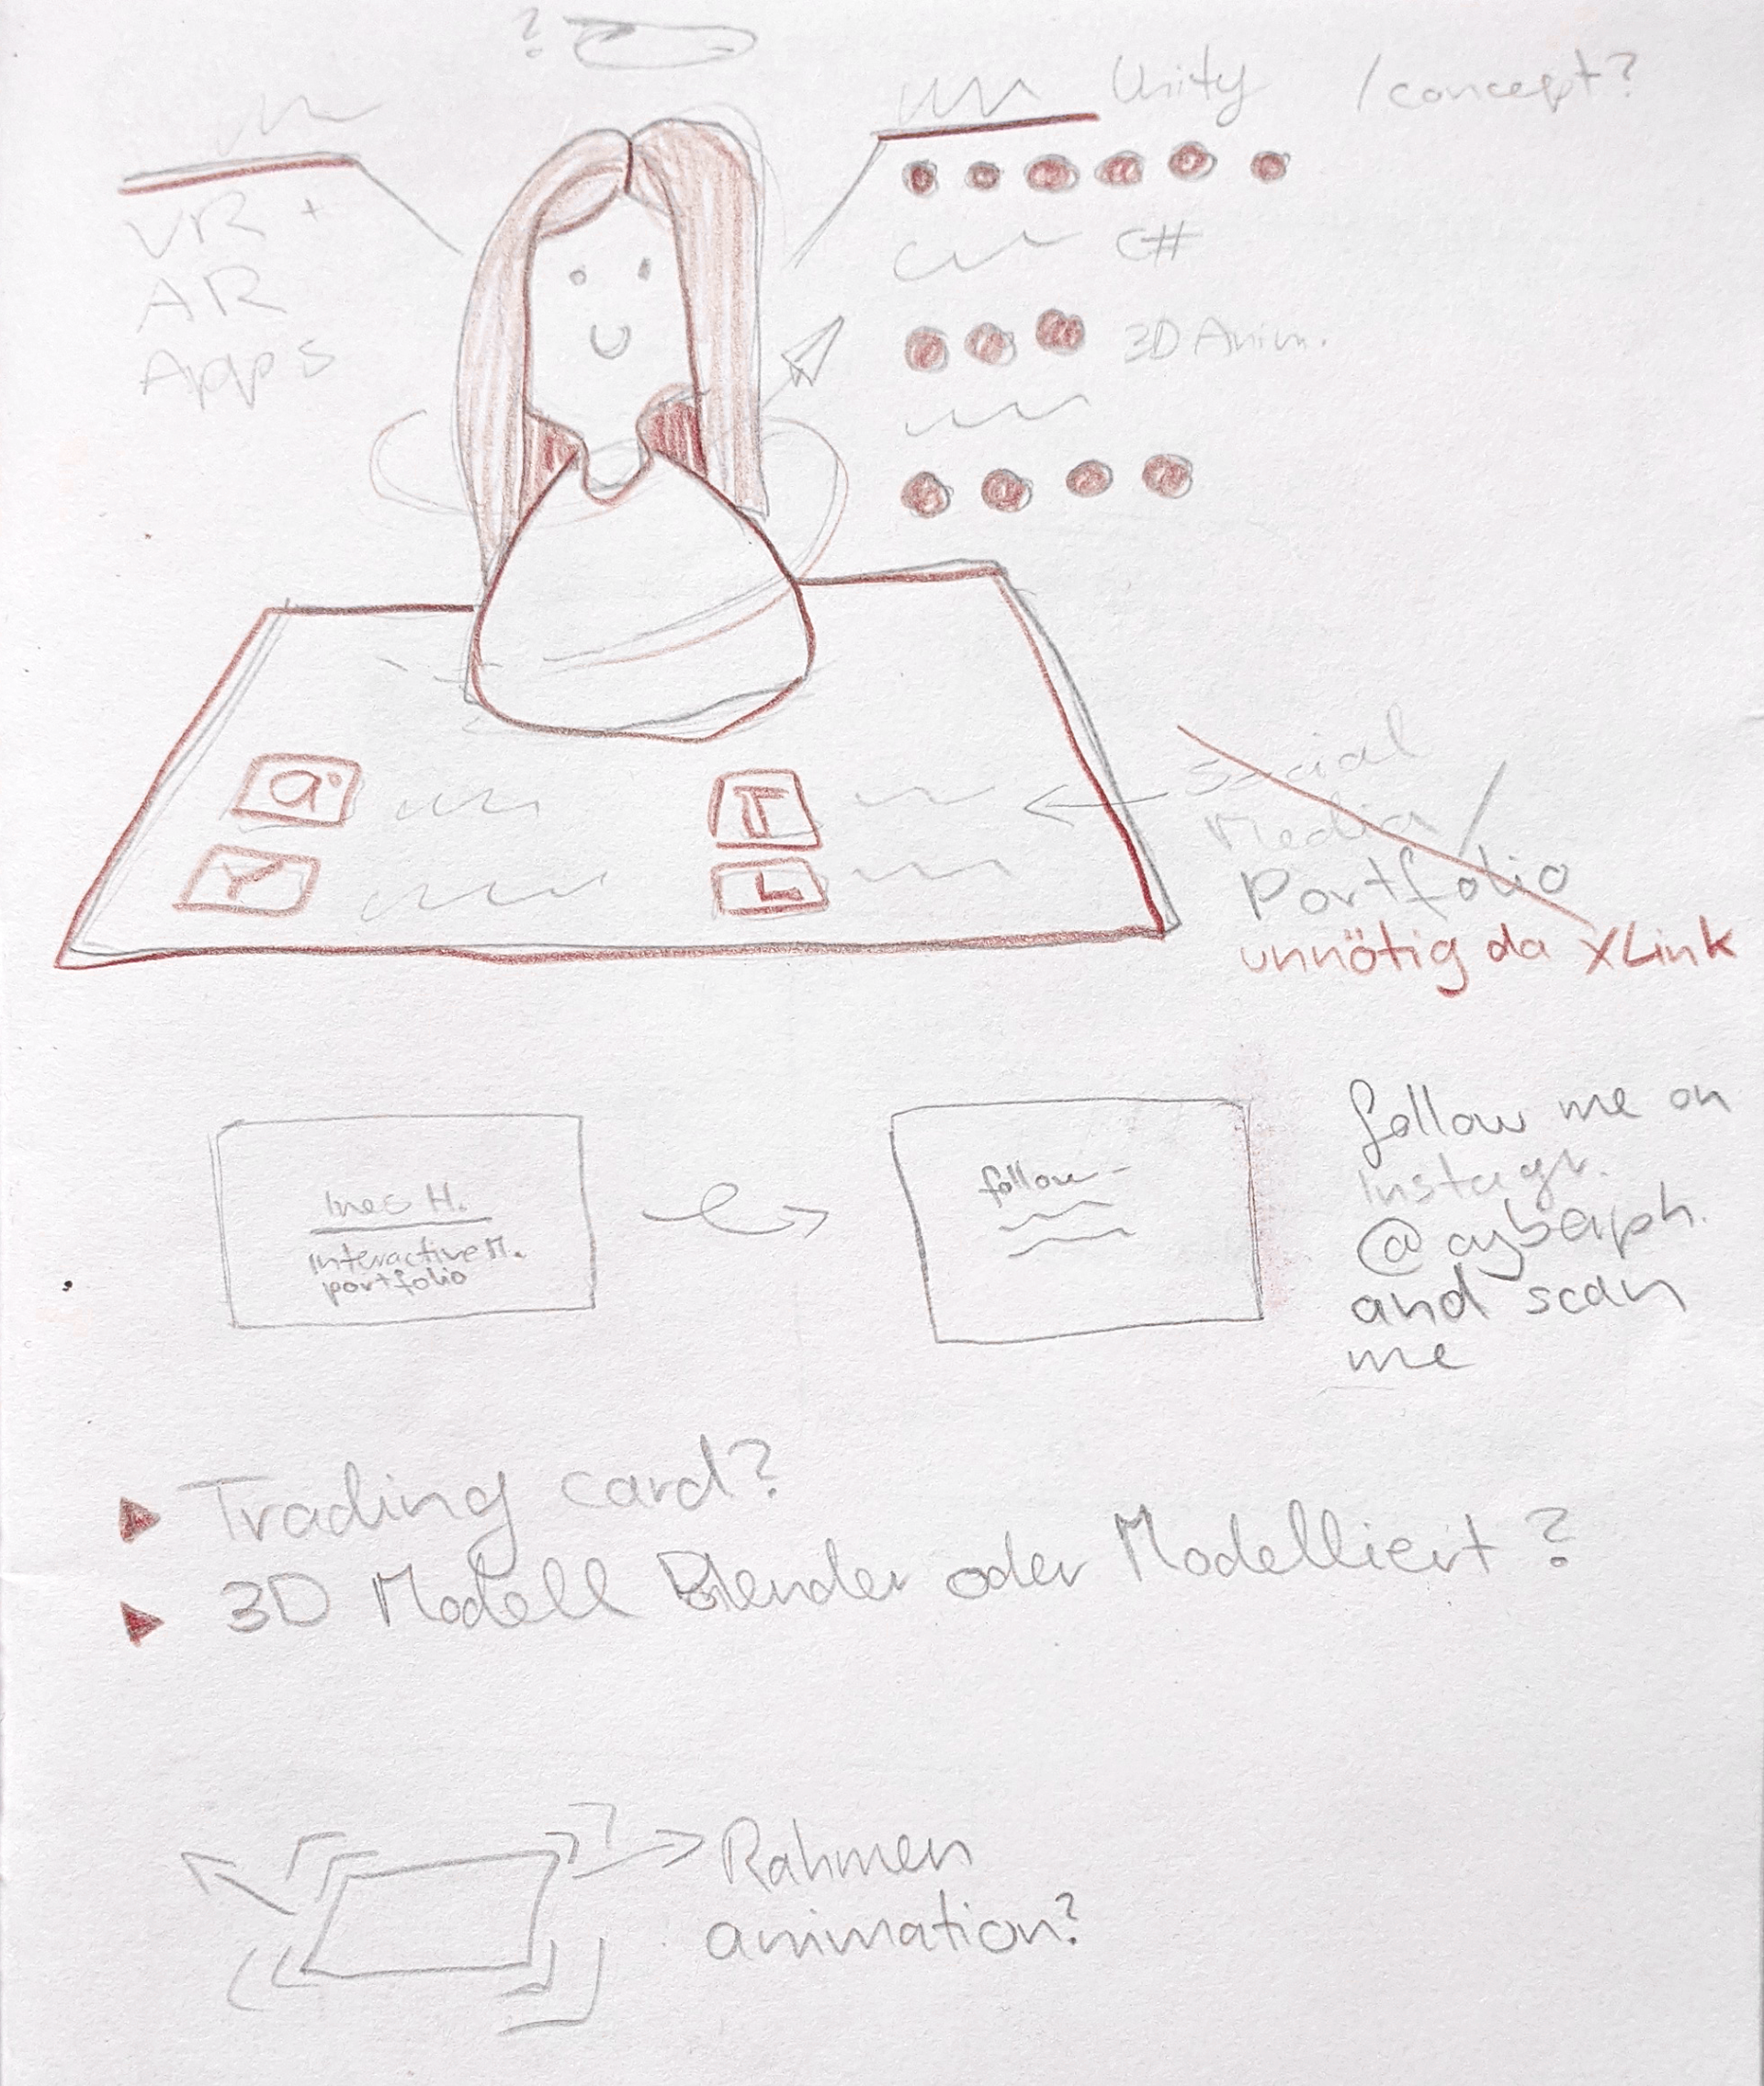 ?
Unity /concept?
VR +
AR
Apps
C#
3D Anim.
a
T
Y
L
Social
Media/
Portfolio
unnötig da XLink
Ines H.
interactive M.
portfolio
follow-
follow me on
Instagr.
@cyberph.
and scan
me
Trading card?
3D Modell Blender oder Modelliert?
Rahmen
animation?